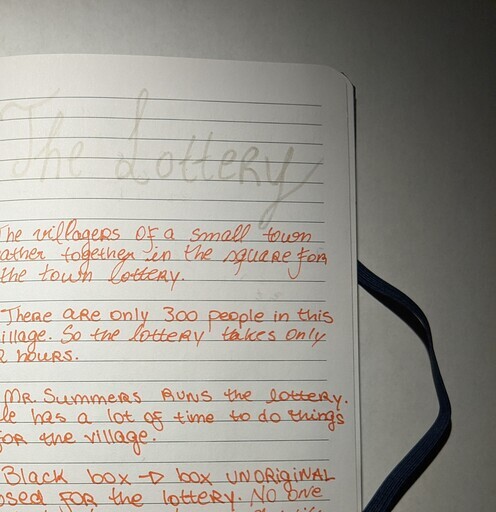 The Lottery
The villagers of a small town
ather together in the square for
the town lottery.
There are only 300 people in this
illage. So the lottery takes only
2 hours.
Mr. Summers runs the lottery.
He has a lot of time to do things
for the village.
Black box → box unoriginal
osed for the lottery. No one